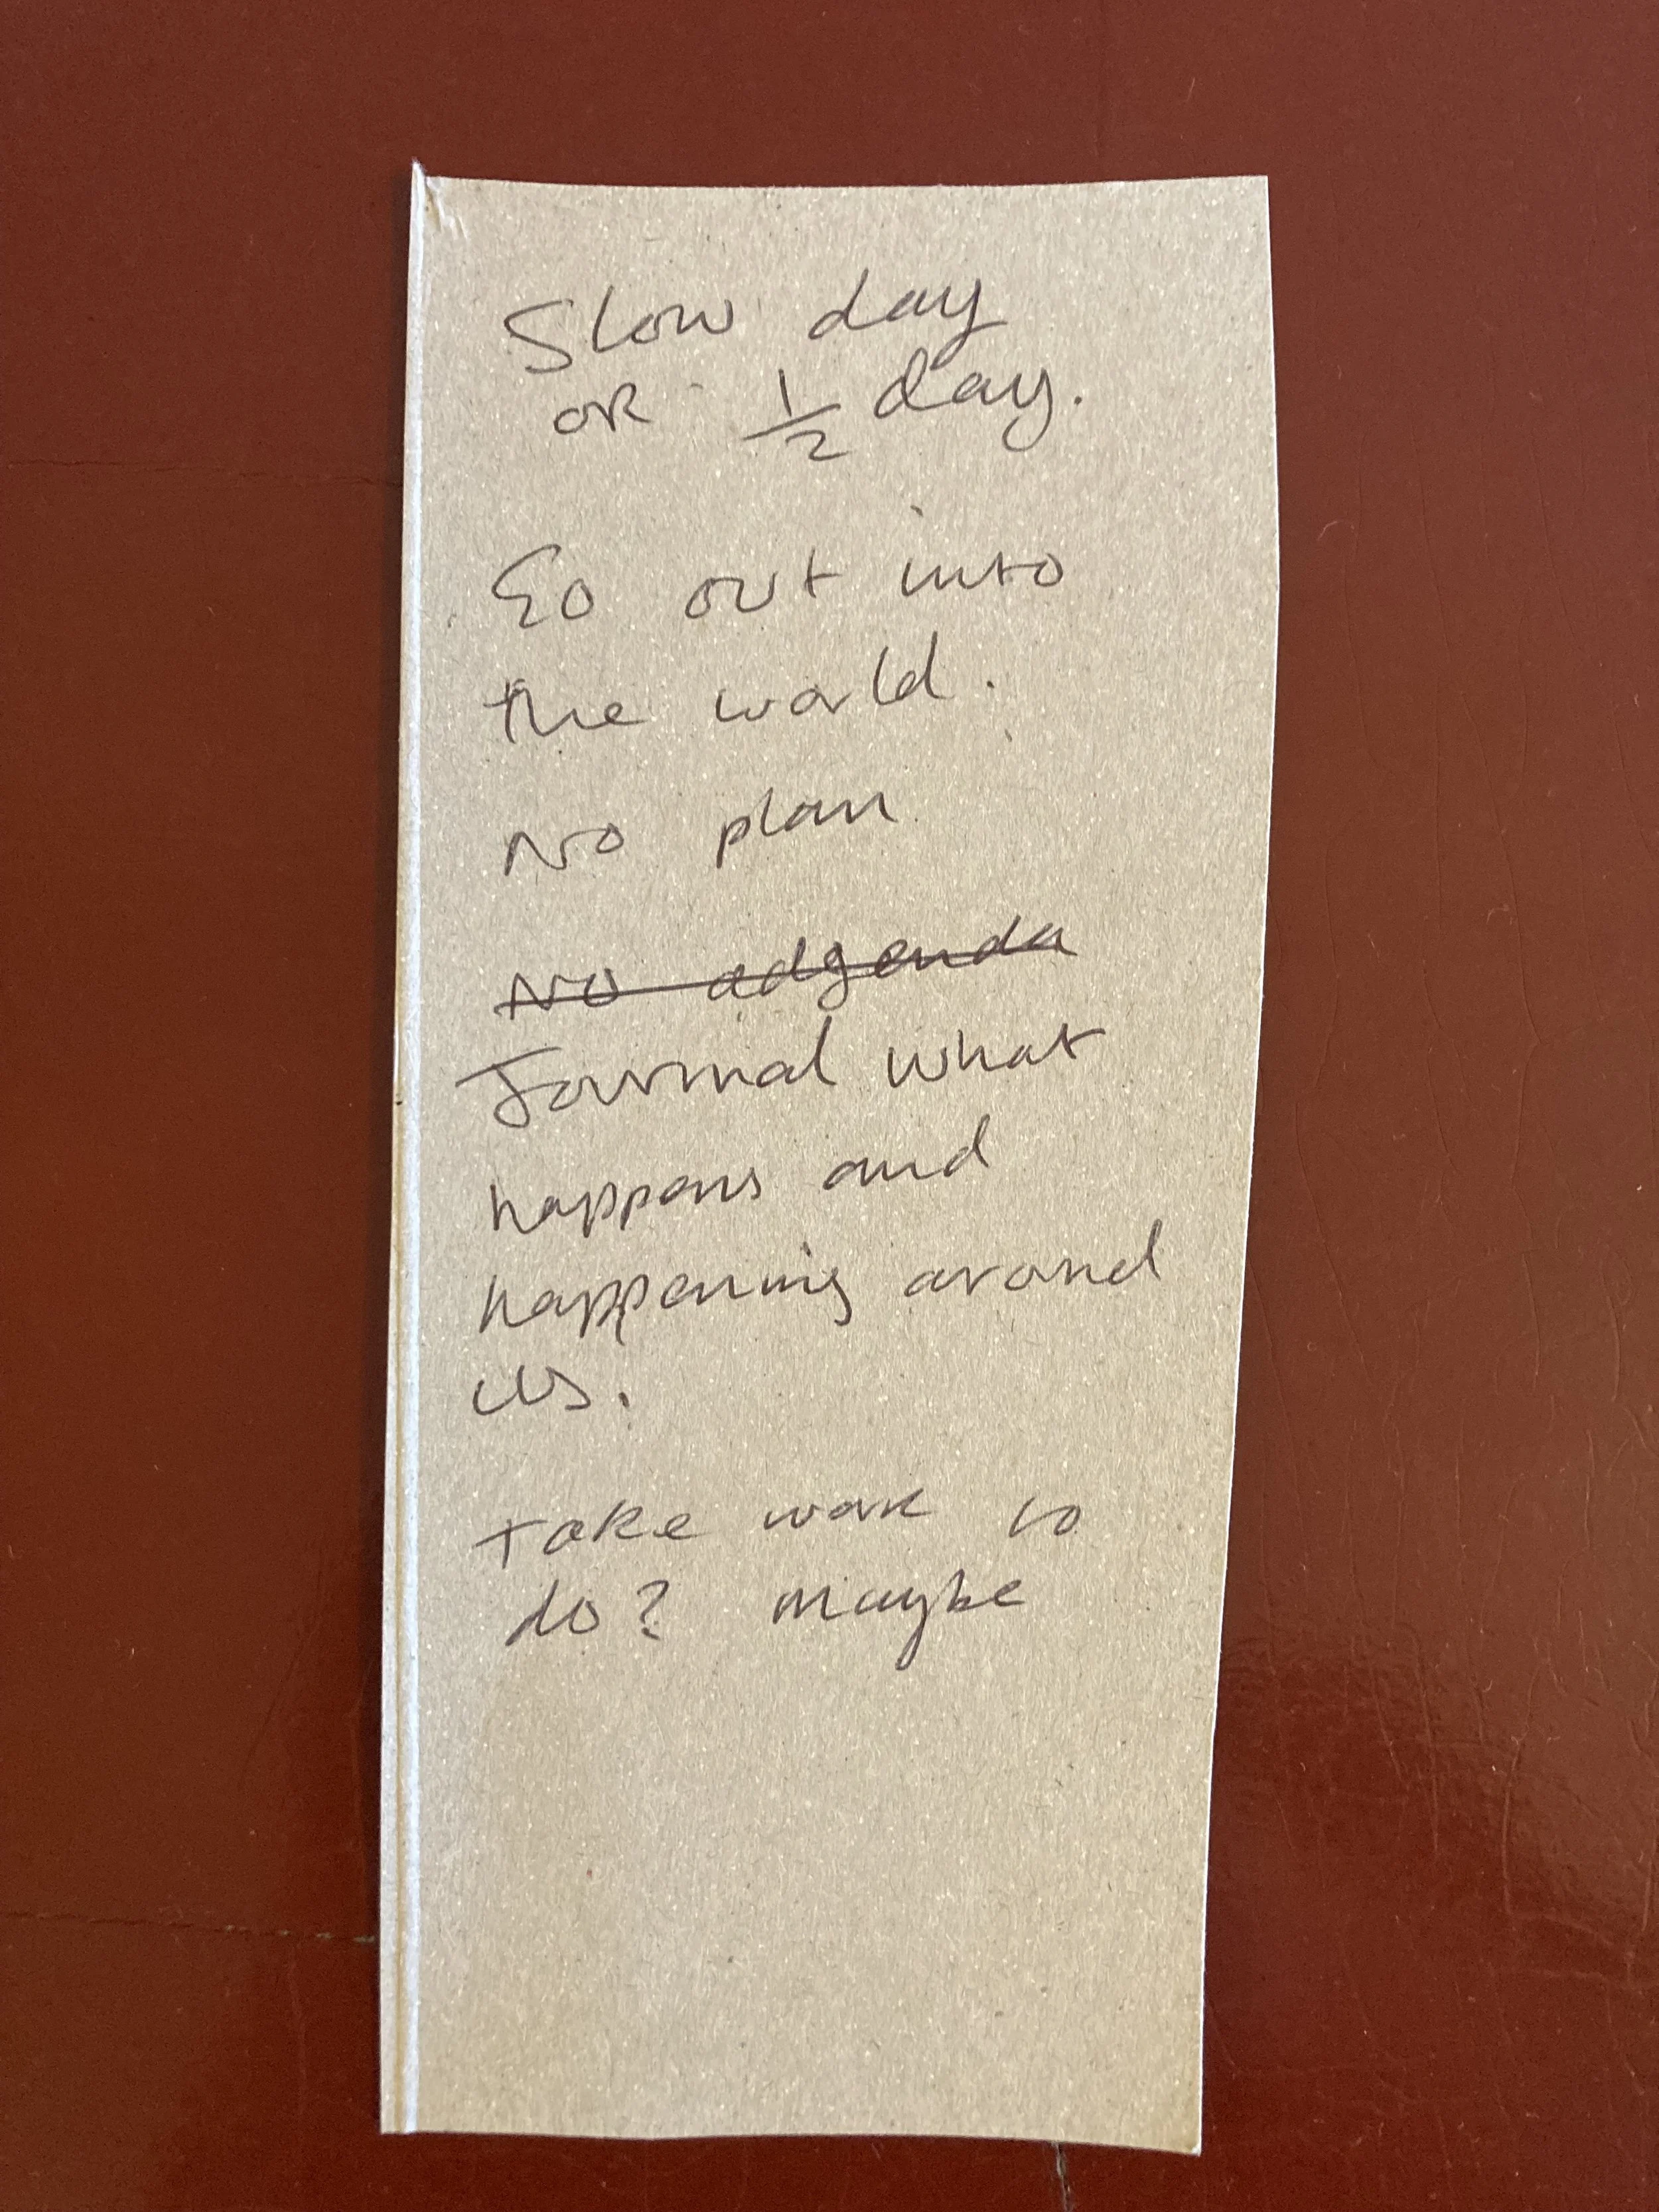 Slow day
or 1/2 day.
Go out into
the world.
No plan
No adgenda
Journal what
happens and
happening around
us.
Take work to
do? maybe